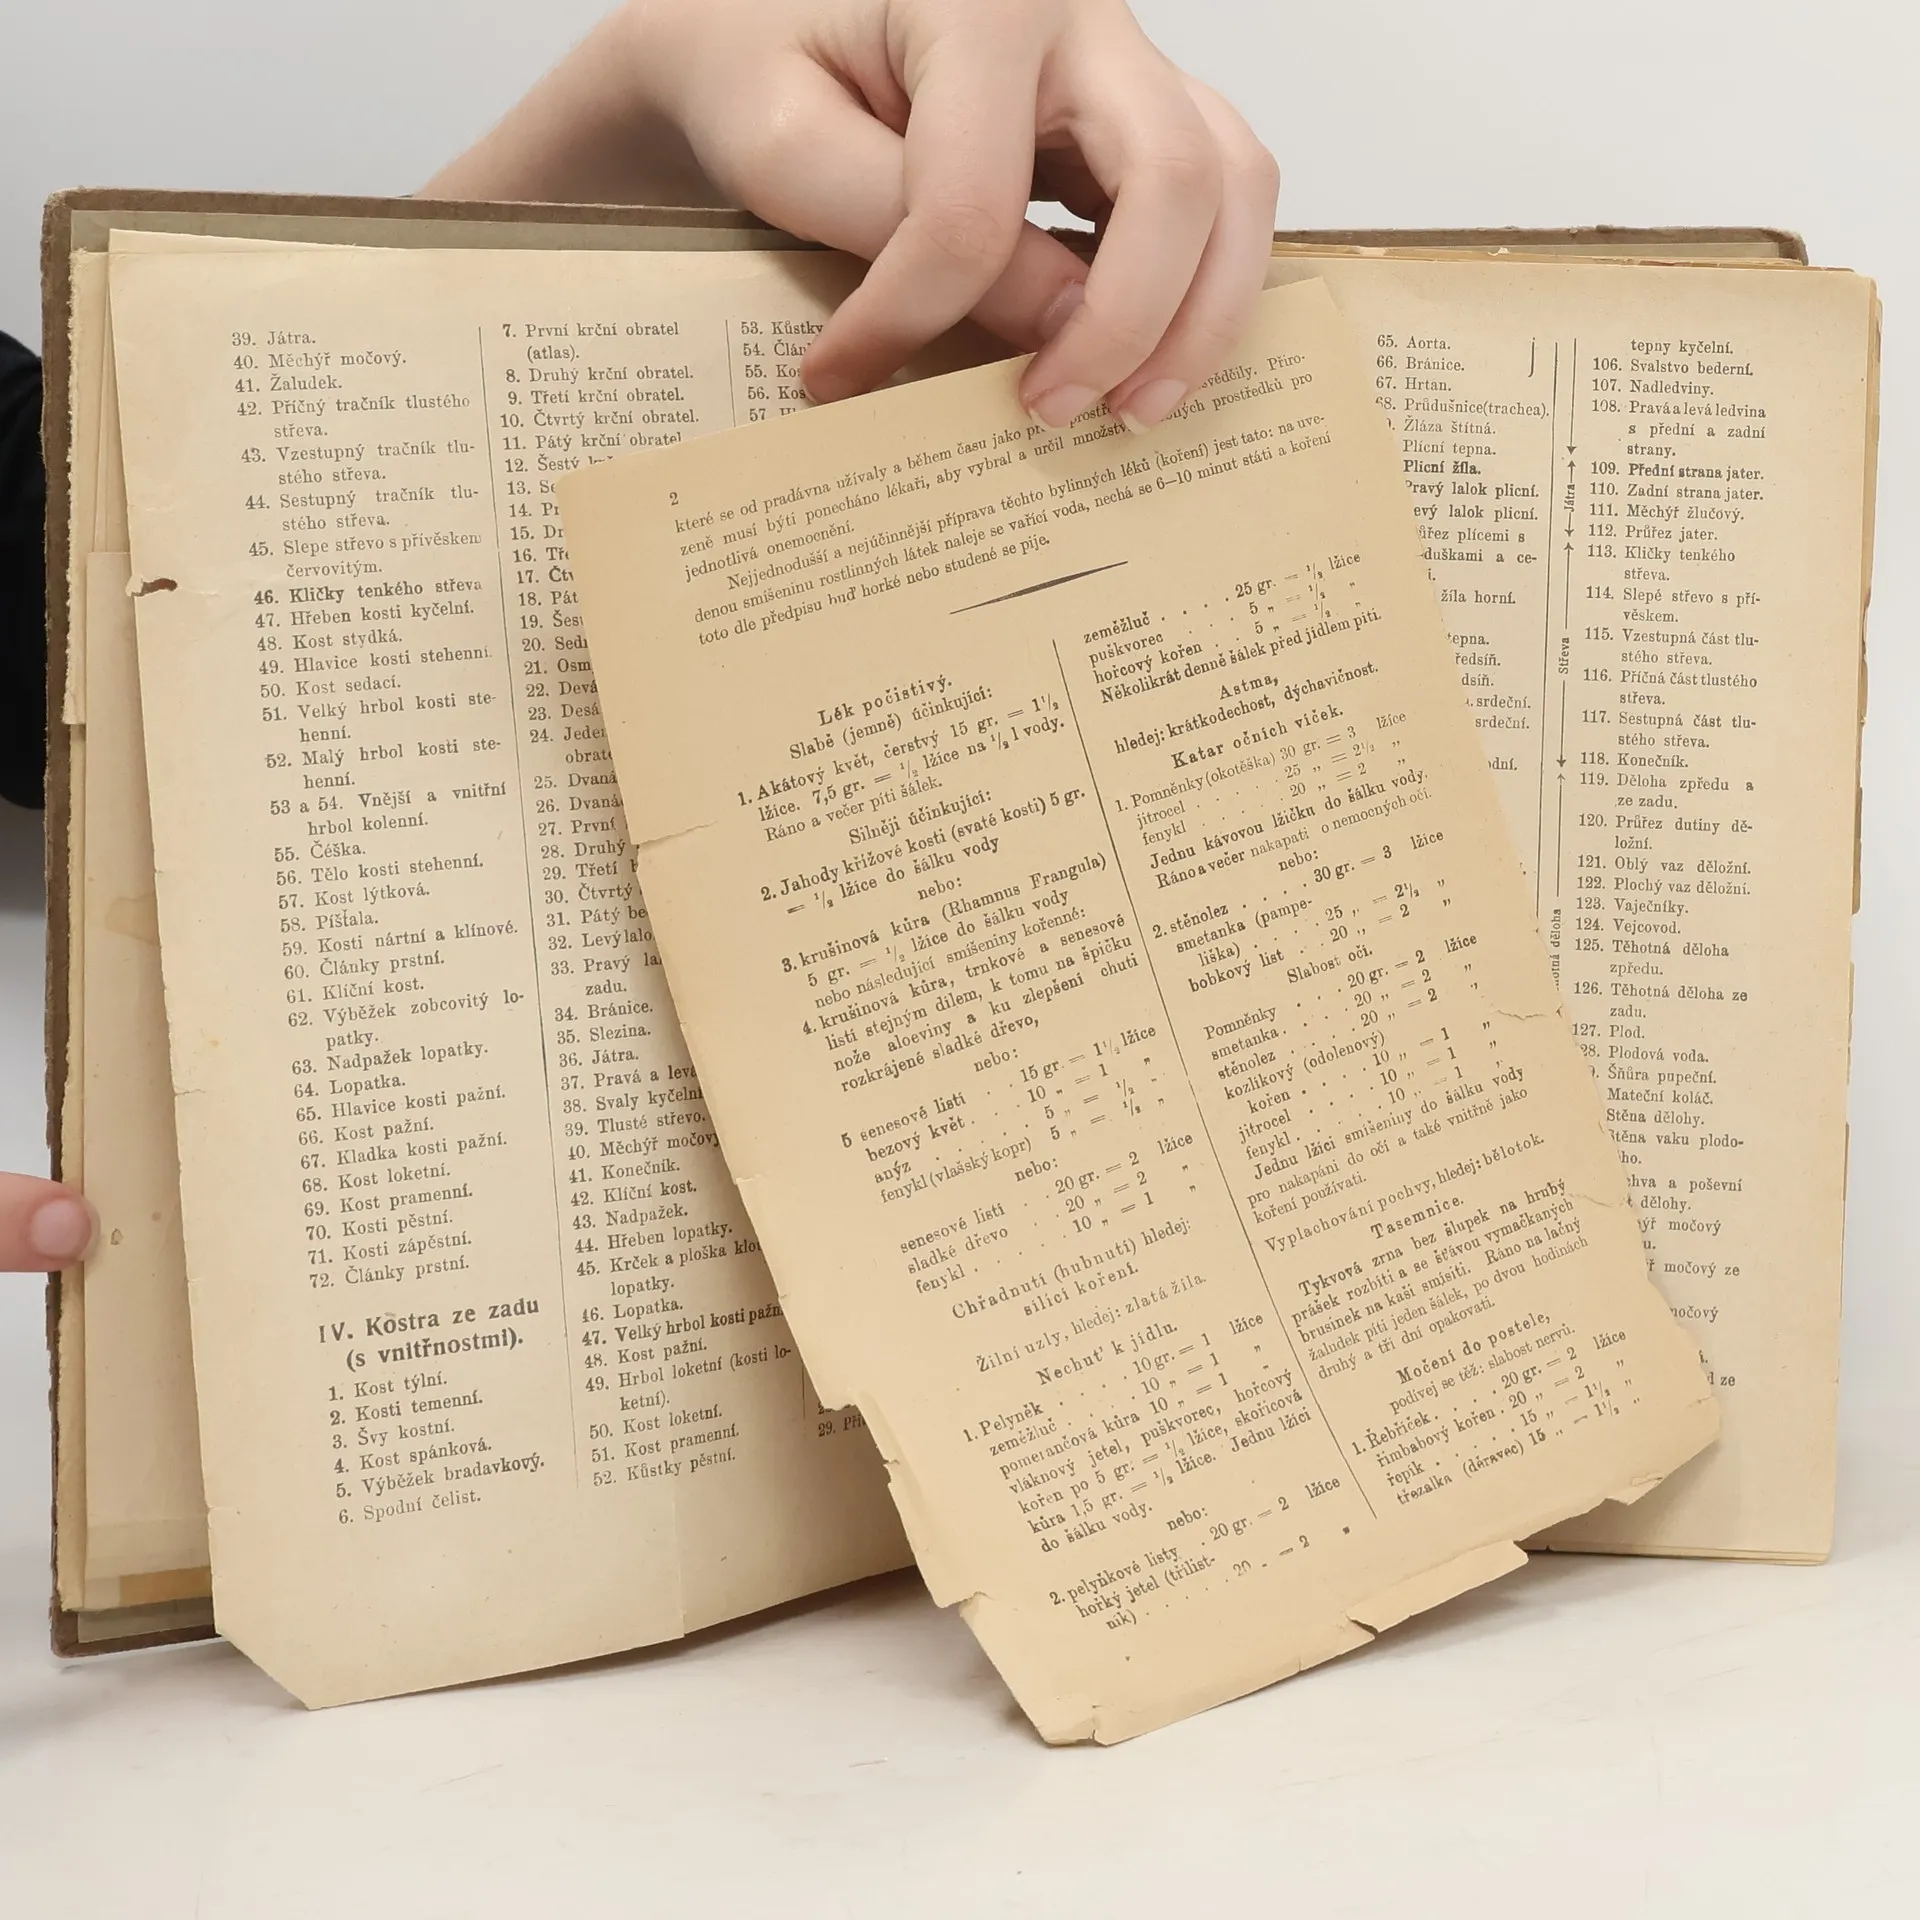 39. Játra.
40. Měchýř močový.
41. Žaludek.
42. Příčný tračník tlustého
střeva.
43. Vzestupný tračník tlu-
stého střeva.
44. Sestupný tračník tlu-
stého střeva.
45. Slepe střevo s přívěskem
červovitým.
46. Kličky tenkého střeva
47. Hřeben kosti kyčelní.
48. Kost stydká.
49. Hlavice kosti stehenní.
50. Kost sedací.
51. Velký hrbol kosti ste-
henní.
52. Malý hrbol kosti ste-
henní.
53 a 54. Vnější a vnitřní
hrbol kolenní.
55. Čéška.
56. Tělo kosti stehenní.
57. Kost lýtková.
58. Píšťala.
59. Kosti nártní a klínové.
60. Články prstní.
61. Klíční kost.
62. Výběžek zobcovitý lo-
patky.
63. Nadpažek lopatky.
64. Lopatka.
65. Hlavice kosti pažní.
66. Kost pažní.
67. Kladka kosti pažní.
68. Kost loketní.
69. Kost pramenní.
70. Kosti pěstní.
71. Kosti zápěstní.
72. Články prstní.
IV. Kostra ze zadu
(s vnitřnostmi).
1. Kost týlní.
2. Kosti temenní.
3. Švy kostní.
4. Kost spánková.
5. Výběžek bradavkový.
6. Spodní čelist.
7. První krční obratel
(atlas).
8. Druhý krční obratel.
9. Třetí krční obratel.
10. Čtvrtý krční obratel.
11. Pátý krční obratel
12. Šestý
13.
14.
15.
16.
17.
18.
19.
20.
21.
22.
23.
24.
25.
26.
27. První
28. Druhý
29. Třetí
30. Čtvrtý
31. Pátý
32. Levý
33. Pravý
zadu.
34. Bránice.
35. Slezina.
36. Játra.
37. Pravá a
38. Svaly
39. Tlusté střevo.
40. Měchýř
41. Konečník.
42. Klíční kost.
43. Nadpažek.
44. Hřeben lopatky.
45. Krček a ploška
lopatky.
46. Lopatka.
47. Velký hrbol kosti
48. Kost pažní.
49. Hrbol loketní (kosti lo-
ketní).
50. Kost loketní.
51. Kost pramenní.
52. Kůstky pěstní.
53. Kůstky
54.
55.
56.
57
29.
2
které se od pradávna užívaly a během času jako Příro-
zeně musí býti ponecháno lékaři, aby vybral a určil prostředků pro
jednotlivá onemocnění.
Nejjednodušší a nejúčinnější příprava těchto bylinných léků (koření) jest tato: na uve-
denou smíšeninu rostlinných látek naleje se vařící voda, nechá se 6–10 minut státi a koření
toto dle předpisu buď horké nebo studené se pije.
Lék počistivý.
Slabě (jemně) účinkující:
1. Akátový květ, čerstvý 15 gr. = 1½
lžíce. 7,5 gr. = ½ lžíce na ½ l vody.
Ráno a večer píti šálek.
Silněji účinkující:
2. Jahody křížové kosti (svaté kosti) 5 gr.
= ½ lžíce do šálku vody
nebo:
3. krušinová kůra (Rhamnus Frangula)
5 gr. = ½ lžíce do šálku vody
nebo následující smíšeniny kořenné:
4. krušinová kůra, trnkové a senesové
listí stejným dílem, k tomu na špičku
nože aloeviny a ku zlepšení chuti
rozkrájené sladké dřevo,
nebo:
5 senesové listí . 15 gr. = 1½ lžíce
bezový květ . . 10 „ = 1 „
anýz . . . . . 5 „ = ½ „
fenykl (vlašský kopr) 5 „ = ½ „
nebo:
senesové listí . 20 gr. = 2 lžíce
sladké dřevo . . 20 „ = 2 „
fenykl . . . . . 10 „ = 1 „
Chřadnutí (hubnutí) hledej:
sílící koření.
Žilní uzly, hledej: zlatá žíla.
Nechuť k jídlu.
1. Pelyněk . . . . 10 gr. = 1 lžíce
zeměžluč . . . . 10 „ = 1 „
pomerančová kůra 10 „ = 1 „
vláknový jetel, puškvorec, hořcový
kořen po 5 gr. = ½ lžíce, skořicová
kůra 1,5 gr. = ½ lžíce. Jednu lžíci
do šálku vody.
nebo:
2. pelyňkové listy . 20 gr. = 2 lžíce
hořký jetel (třílist-
ník) . . . . . 20 - = 2 „
zeměžluč . . . . 25 gr. = ½ lžíce
puškvorec . . . 5 „ = ½ „
hořcový kořen . 5 „ = ½ „
Několikrát denně šálek před jídlem píti.
Astma,
hledej: krátkodechost, dýchavičnost.
Katar očních víček.
1. Pomněnky (okotěška) 30 gr. = 3 lžíce
jitrocel . . . . . 25 „ = 2½ „
fenykl . . . . . 20 „ = 2 „
Jednu kávovou lžičku do šálku vody.
Ráno a večer nakapati o nemocných očí.
nebo:
2. stěnolez . . . . 30 gr. = 3 lžíce
smetanka (pampe-
liška) . . . . . 25 „ = 2½ „
bobkový list . . 20 „ = 2 „
Slabost očí.
Pomněnky . . . 20 gr. = 2 lžíce
smetanka . . . . 20 „ = 2 „
stěnolez . . . . 20 „ = 2 „
kozlíkový (odolenový)
kořen . . . . 10 „ = 1 „
jitrocel . . . . . 10 „ = 1 „
fenykl . . . . . 10 „ = 1 „
Jednu lžíci smíšeniny do šálku vody
pro nakapání do očí a také vnitřně jako
koření používati.
Vyplachování pochvy, hledej: bělotok.
Tasemnice.
Tykvová zrna bez šlupek na hrubý
prášek rozbíti a se šťávou vymačkaných
brusinek na kaši smísiti. Ráno na lačný
žaludek píti jeden šálek, po dvou hodinách
druhý a tři dní opakovati.
Močení do postele,
podívej se též: slabost nervů.
1. Řebříček . . . . 20 gr. = 2 lžíce
řimbabový kořen . 20 „ = 2 „
řepík . . . . . 15 „ = 1½ „
třezalka (děravec) 15 „ = 1½ „
65. Aorta.
66. Bránice.
67. Hrtan.
68. Průdušnice(trachea).
Žláza štítná.
Plicní tepna.
Plicní žíla.
Pravý lalok plicní.
lalok plicní.
plícemi s
a ce-
žíla horní.
srdeční.
srdeční.
Játra
Střeva
děloha
tepny kyčelní.
106. Svalstvo bederní.
107. Nadledviny.
108. Pravá a levá ledvina
s přední a zadní
strany.
109. Přední strana jater.
110. Zadní strana jater.
111. Měchýř žlučový.
112. Průřez jater.
113. Kličky tenkého
střeva.
114. Slepé střevo s pří-
věskem.
115. Vzestupná část tlu-
stého střeva.
116. Příčná část tlustého
střeva.
117. Sestupná část tlu-
stého střeva.
118. Konečník.
119. Děloha zpředu a
ze zadu.
120. Průřez dutiny dě-
ložní.
121. Oblý vaz děložní.
122. Plochý vaz děložní.
123. Vaječníky.
124. Vejcovod.
125. Těhotná děloha
zpředu.
126. Těhotná děloha ze
zadu.
127. Plod.
128. Plodová voda.
Šňůra pupeční.
Mateční koláč.
Stěna dělohy.
Stěna vaku plodo-
a poševní
dělohy.
močový
močový ze
močový
ze